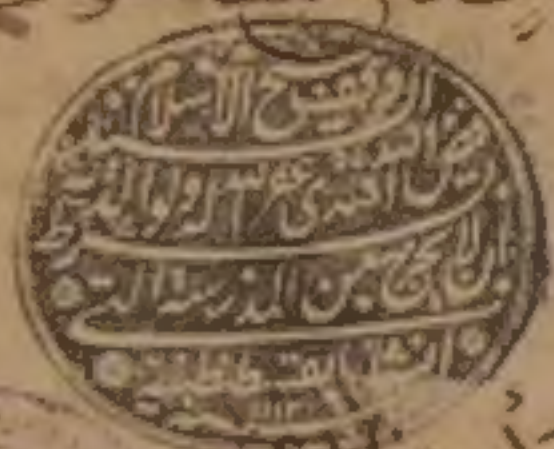 وقف شيخ الاسلام
السيد فيض الله افندى غفر الله له ولوالديه
بشرط ان لا يخرج من المدرسة التي
انشاها بقسطنطينية
سنة ١١١٣